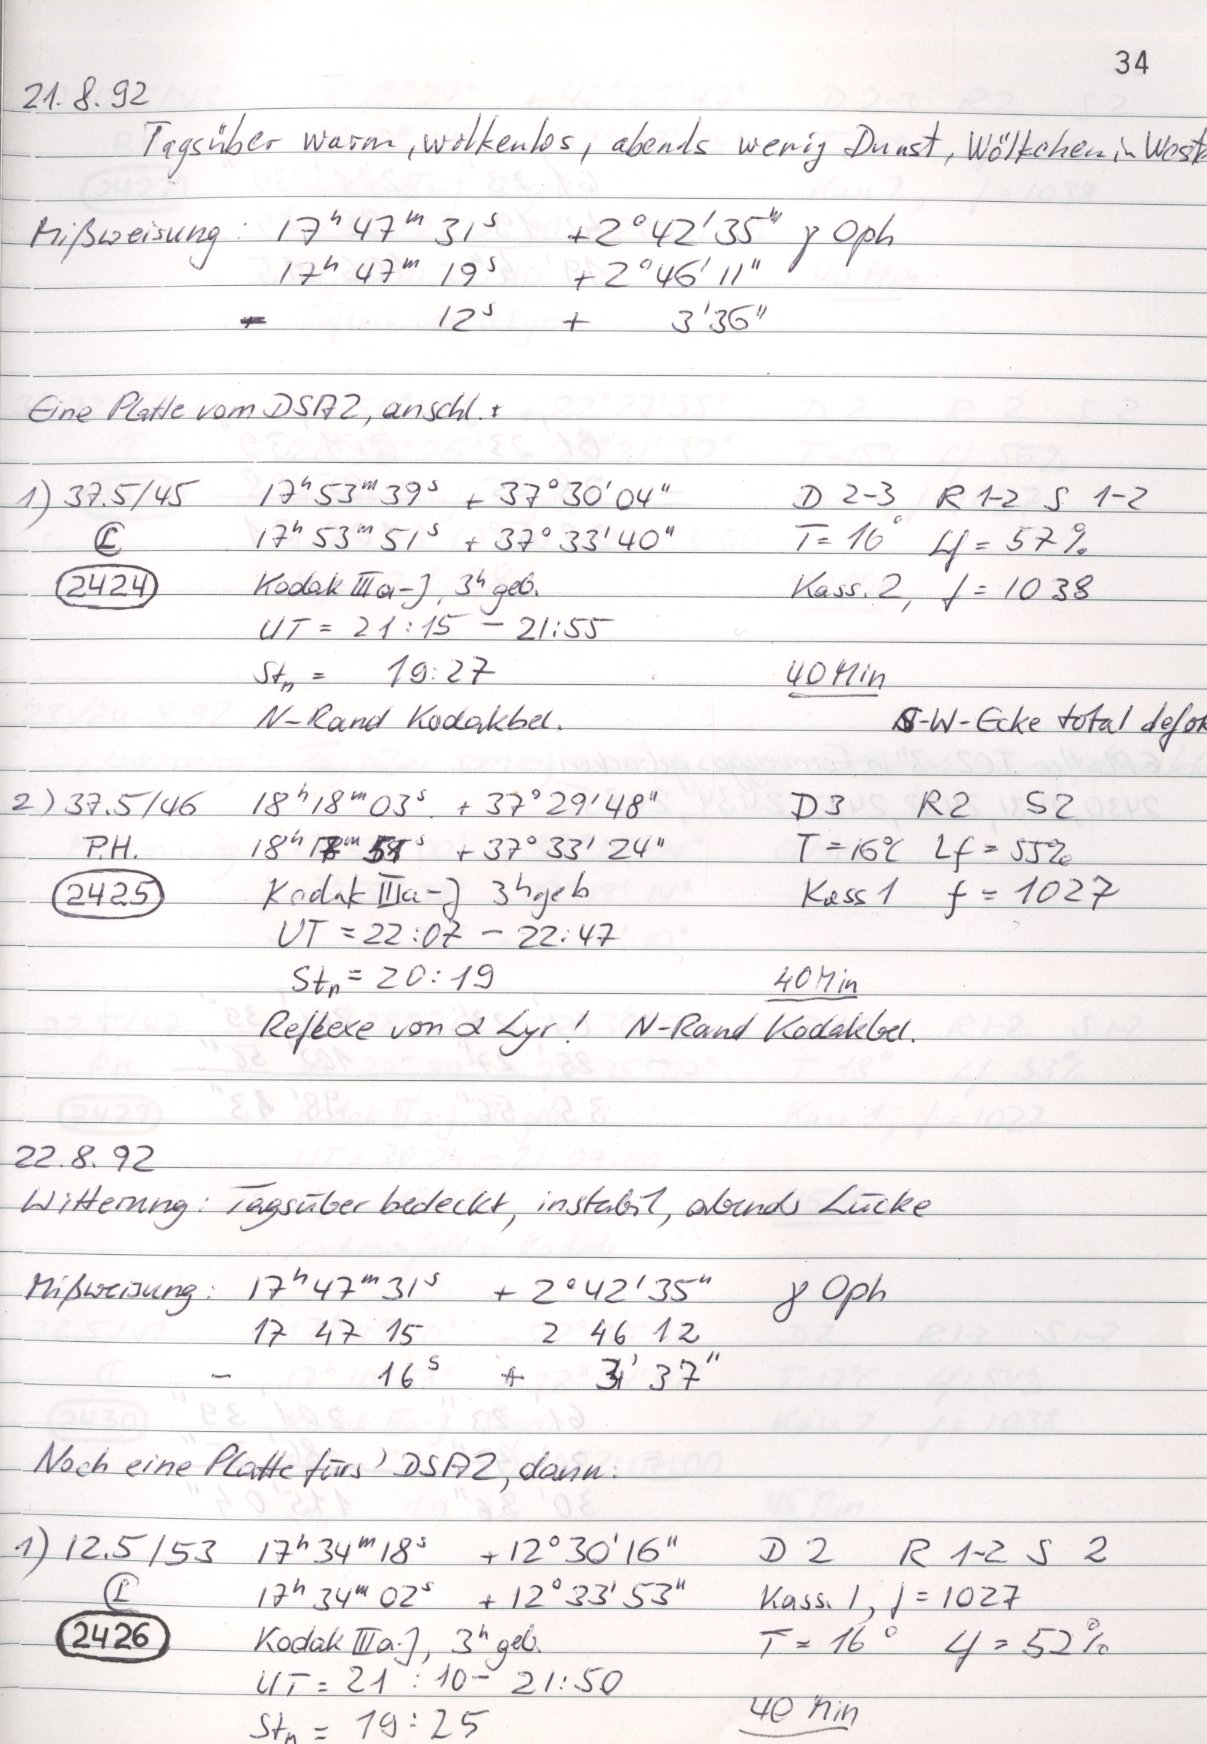 34
21.8.92
Tagsüber warm, wolkenlos, abends wenig Dunst, Wölkchen in West
Mißweisung: 17h 47m 31s +2°42'35" γ Oph
17h 47m 19s +2°46'11"
- 12s + 3'36"
Eine Platte vom DSAZ, anschl.
1) 37.5/45 17h 53m 39s + 37°30'04" D 2-3 R 1-2 S 1-2
17h 53m 51s + 37°33'40" T=16° Lf = 57%
2424 Kodak IIIa-J, 3h geb. Kass. 2, f = 1038
UT = 21:15 - 21:55
Stn = 19:27 40 Min
N-Rand Kodakbel. S-W-Ecke total defor
2) 37.5/46 18h 18m 03s + 37°29'48" D3 R2 S2
P.H. 18h 17m 51s + 37°33'24" T=16°C Lf = 55%
2425 Kodak IIIa-J 3h geb Kass 1 f = 1027
UT = 22:07 - 22:47
Stn = 20:19 40 Min
Reflexe von α Lyr! N-Rand Kodakbel.
22.8.92
Witterung: Tagsüber bedeckt, instabil, abends Lücke
Mißweisung: 17h 47m 31s + 2°42'35" γ Oph
17 47 15 2 46 12
- 16s + 3' 37"
Noch eine Platte fürs' DSAZ, dann:
1) 12.5/53 17h 34m 18s +12°30'16" D 2 R 1-2 S 2
17h 34m 02s +12°33'53" Kass. 1, f = 1027
2426 Kodak IIIa-J, 3h geb. T = 16° Lf = 52%
UT = 21:10 - 21:50
Stn = 19:25 40 Min